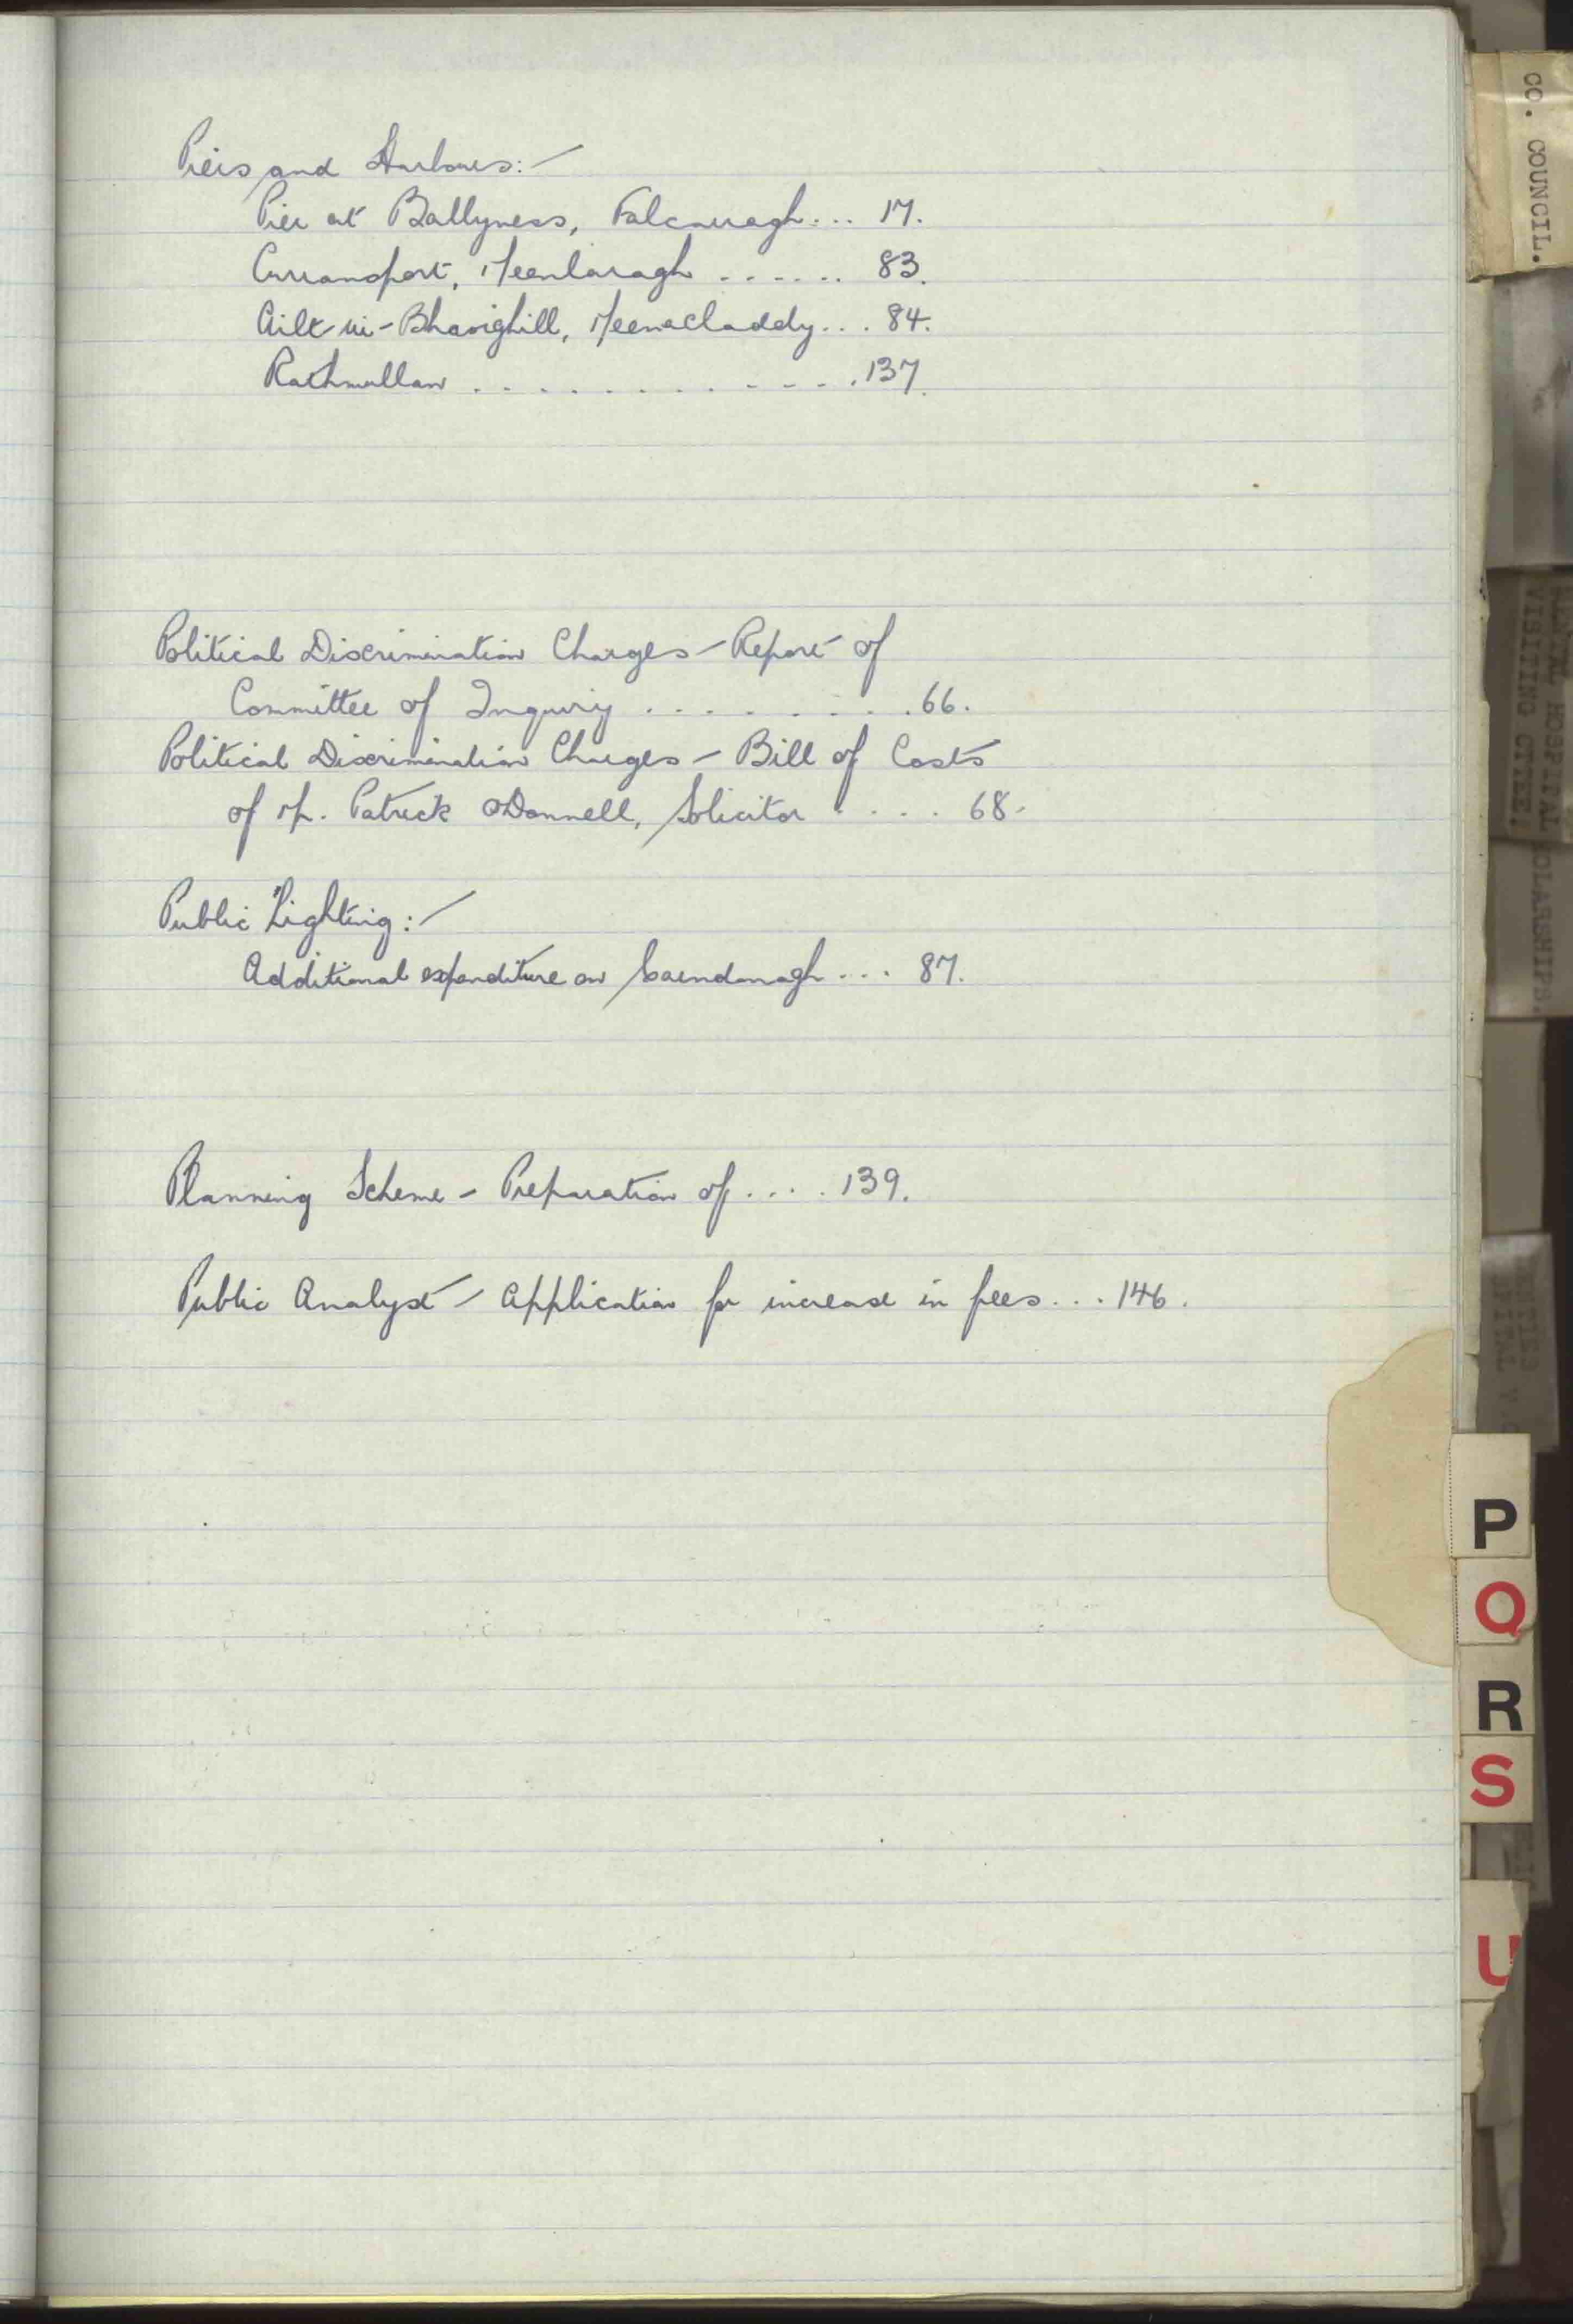 Piers and Harbours:-
Pier at Ballyness, Falcarragh... 17.
Curransport, Meenlaragh ...... 83.
Ailt-ui-Bhaoighill, Meenacladdy... 84.
Rathmullan ............. 137.
Political Discrimination Charges - Report of
Committee of Inquiry ......... 66.
Political Discrimination Charges - Bill of Costs
of Mr. Patrick O'Donnell, Solicitor .... 68.
Public Lighting:-
Additional expenditure on Carndonagh ... 87.
Planning Scheme - Preparation of .... 139.
Public Analyst - Application for increase in fees ... 146.
CO. COUNCIL.
HOSPITAL
VISITING CTTEE.
P
Q
R
S
U